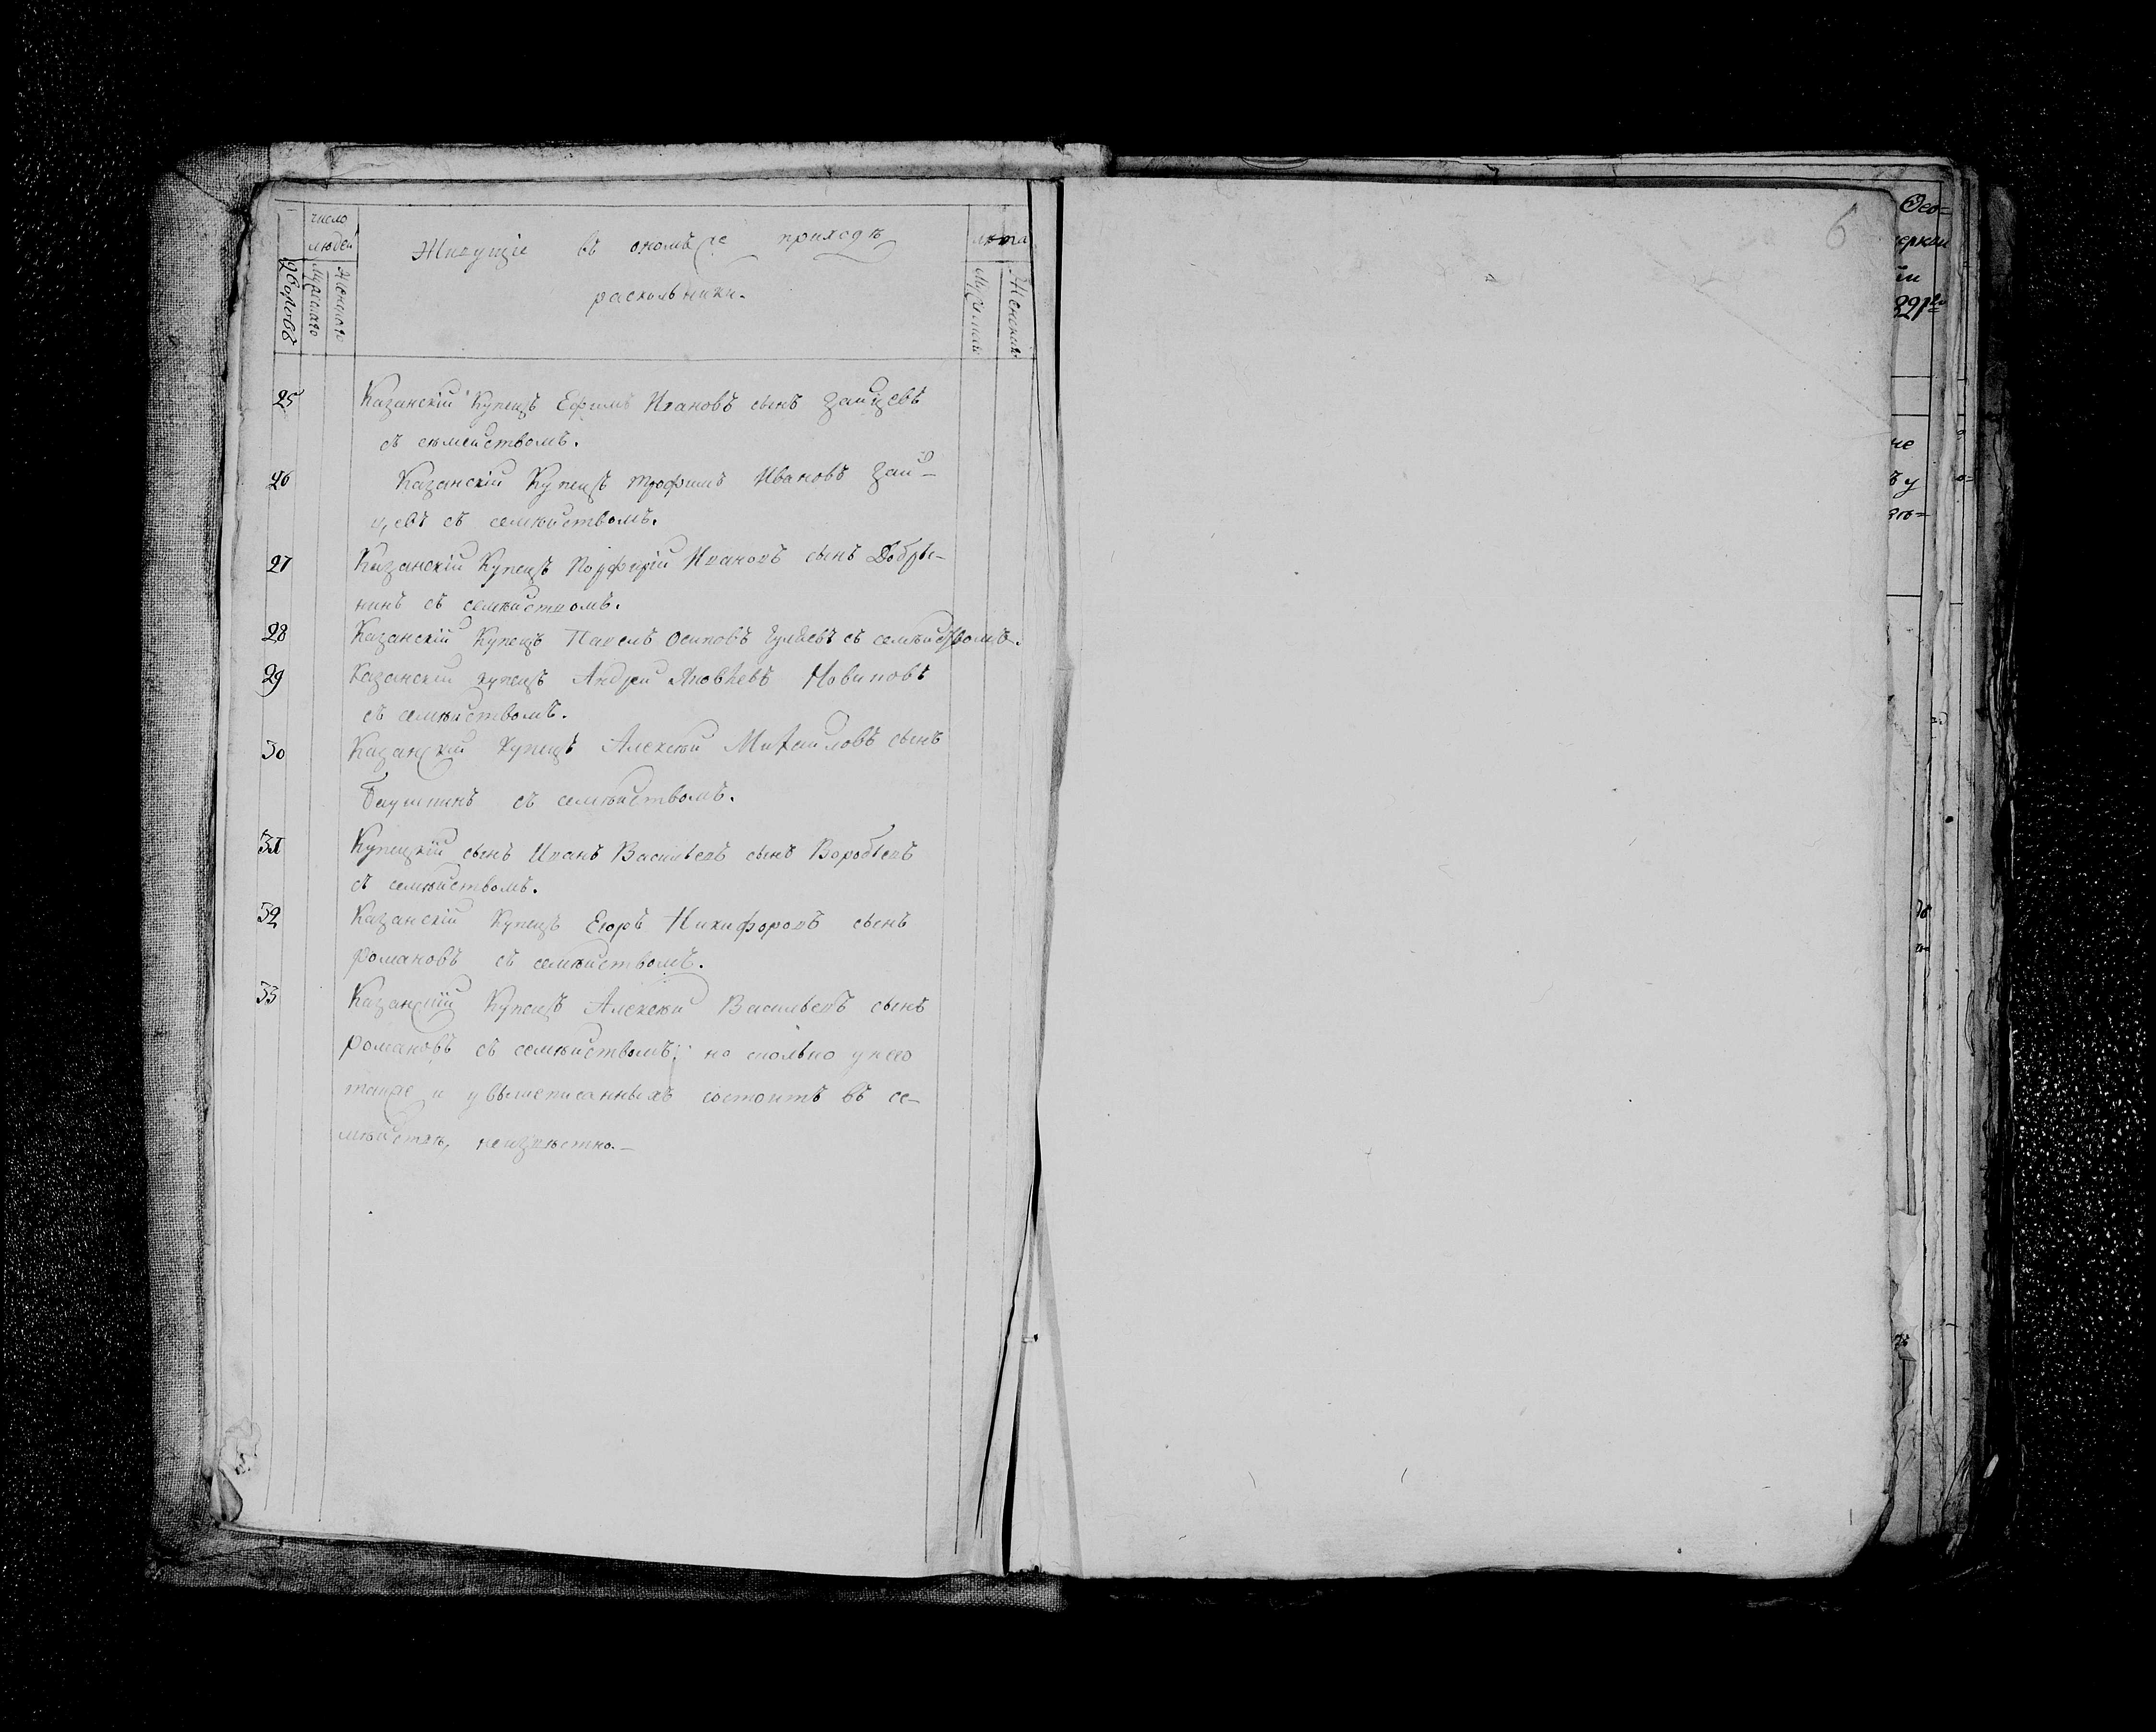 число
людей
дворовъ
Мужеска
Женска
Живущіе въ ономъ же приходѣ
раскольники.
лѣта
Мужеска
Женска
25
Казанскій Купецъ Ефимъ Ивановъ сынъ Зайцевъ
съ сѣмействомъ.
26
Казанскій Купецъ Трофимъ Ивановъ Зай-
цевъ съ семѣйствомъ.
27
Казанскій Купецъ Порфирій Ивановъ сынъ Добры-
нинъ съ семѣйствомъ.
28
Казанскій Купецъ Павелъ Осиповъ съ семѣйствомъ.
29
Казанскій купецъ Андрей Яковлевъ
съ семѣйствомъ.
30
Казанскій Купецъ Алексѣй Михайловъ сынъ
съ семѣйствомъ.
31
Купецкій сынъ Иванъ Васильевъ сынъ Воробьевъ
съ семѣйствомъ.
32
Казанскій Купецъ Егоръ Никифоровъ сынъ
романовъ съ семѣйствомъ.
33
Казанскій Купецъ Алексѣй Васильевъ сынъ
романовъ съ семѣйствомъ; но сколько у него
также и увышеписанныхъ состоитъ въ се-
мѣйствѣ, неизвѣстно.—
6
321